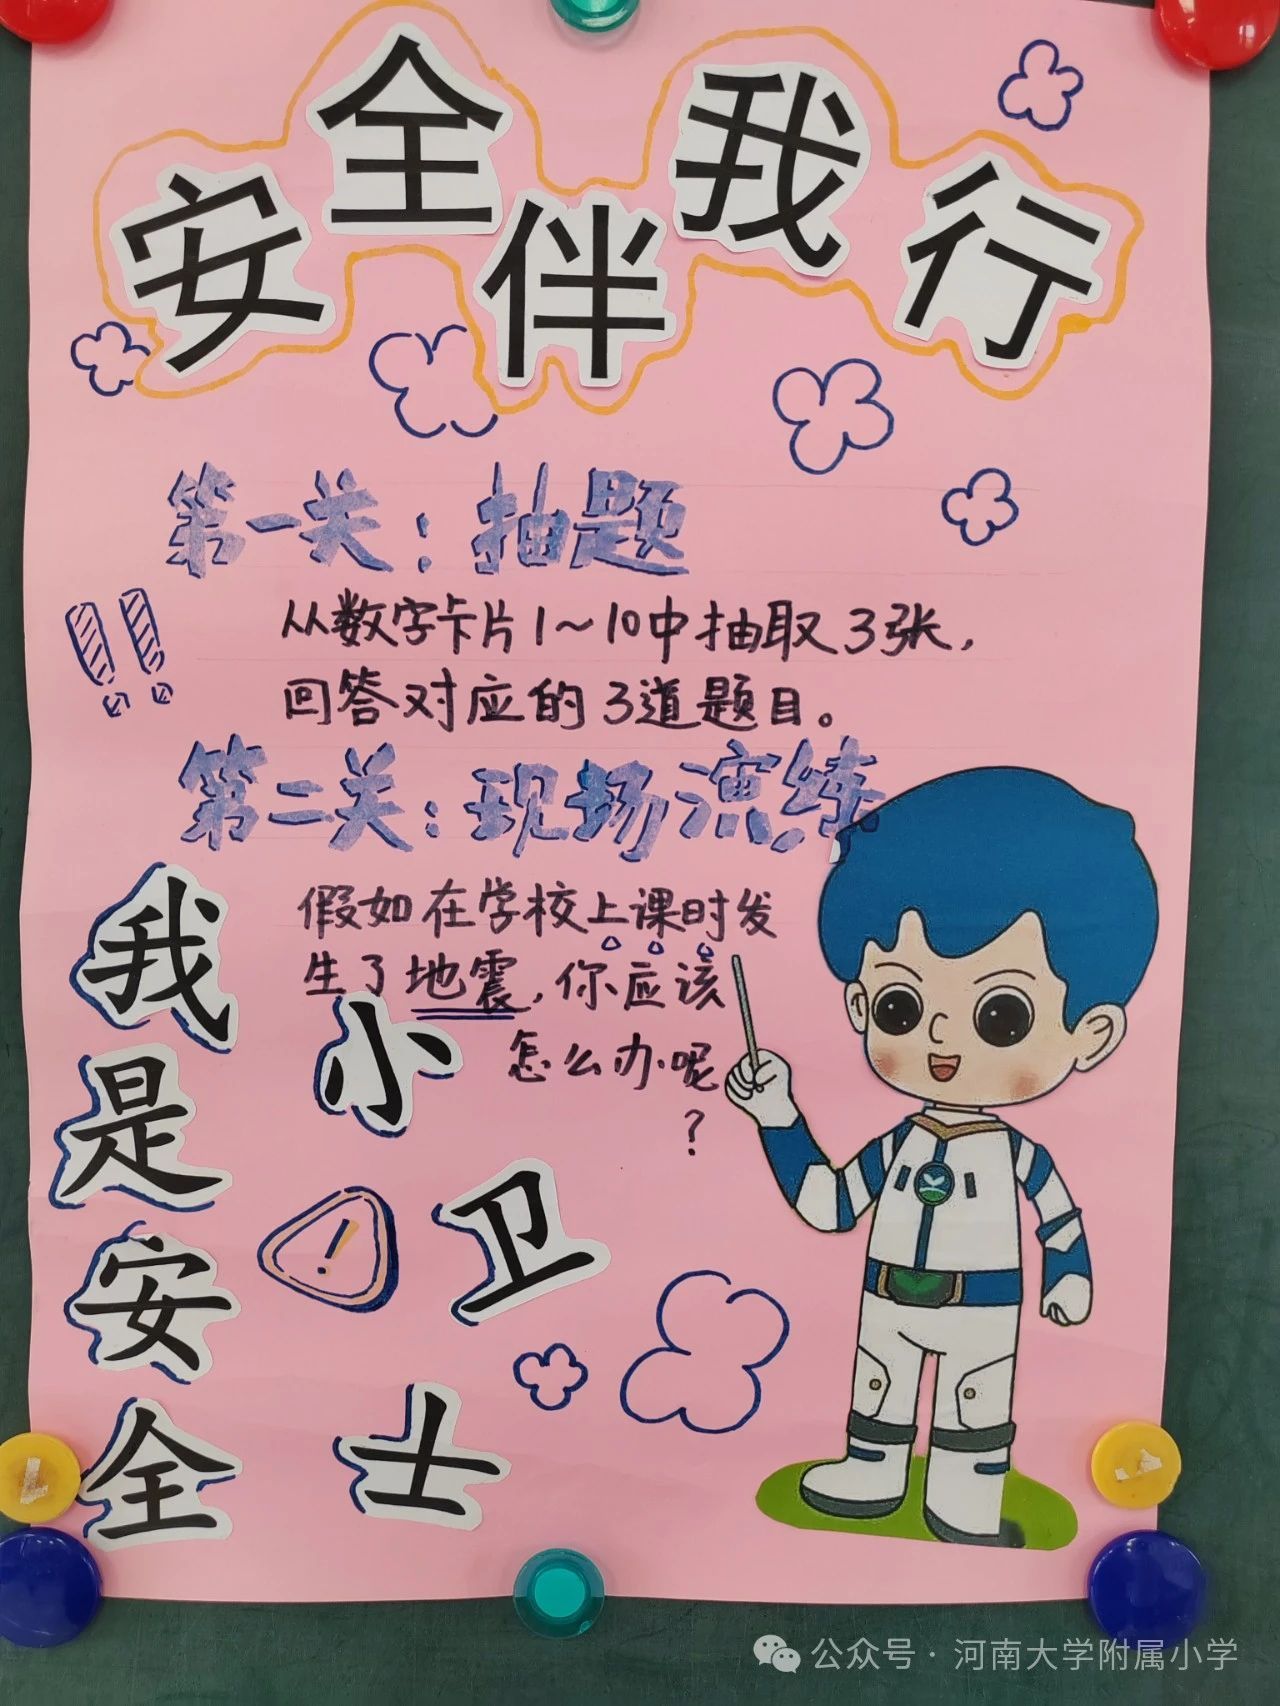 安全伴我行
第一关：抽题
从数字卡片1～10中抽取3张，
回答对应的3道题目。
第二关：现场演练
假如在学校上课时发
生了地震，你应该
怎么办呢
？
我是安全
小卫士
公众号·河南大学附属小学